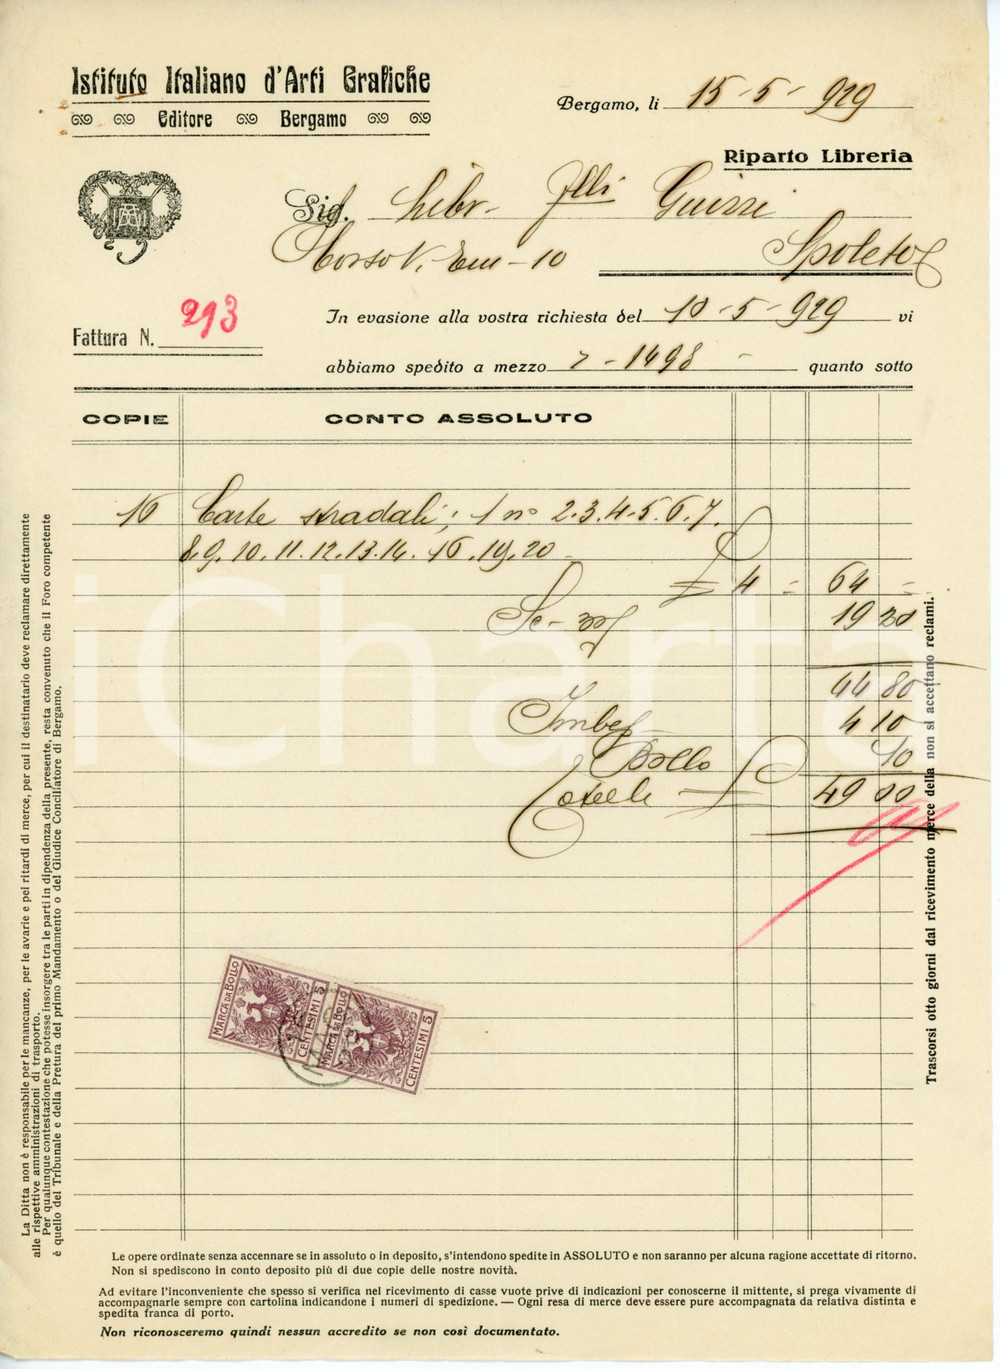 Istituto Italiano d'Arti Grafiche
Editore Bergamo
Bergamo, li 15-5-929
Riparto Libreria
Sig. Libr. Flli
Corso V. Em-10 Spoleto
Fattura N. 293
In evasione alla vostra richiesta del 10-5-929 vi
abbiamo spedito a mezzo 7-1498 - quanto sotto
COPIE CONTO ASSOLUTO
16 Carte stradali; 1 no 2.3.4.5.6.7.
8.9.10.11.12.13.14.16.19.20-
£ 4 = 64 =
Sc- 19 20
44 80
Imb 4 10
Bollo 10
49 00
MARCA DA BOLLO CENTESIMI 5
MARCA DA BOLLO CENTESIMI 5
La Ditta non è responsabile per le mancanze, per le avarie e pei ritardi di merce, per cui il destinatario deve reclamare direttamente
alle rispettive amministrazioni di trasporto.
Per qualunque contestazione che potesse insorgere tra le parti in dipendenza della presente, resta convenuto che il Foro competente
è quello del Tribunale e della Pretura del primo Mandamento o del Giudice Conciliatore di Bergamo.
Trascorsi otto giorni dal ricevimento merce della non si accettano reclami.
Le opere ordinate senza accennare se in assoluto o in deposito, s'intendono spedite in ASSOLUTO e non saranno per alcuna ragione accettate di ritorno.
Non si spediscono in conto deposito più di due copie delle nostre novità.
Ad evitare l'inconveniente che spesso si verifica nel ricevimento di casse vuote prive di indicazioni per conoscerne il mittente, si prega vivamente di
accompagnarle sempre con cartolina indicandone i numeri di spedizione. — Ogni resa di merce deve essere pure accompagnata da relativa distinta e
spedita franca di porto.
Non riconosceremo quindi nessun accredito se non così documentato.
iCharta